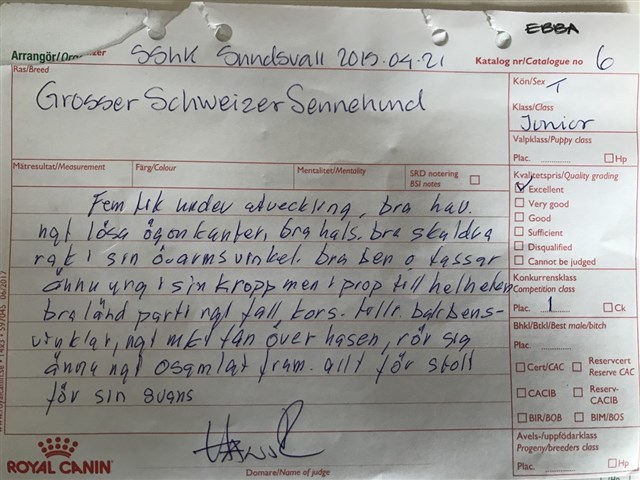 EBBA
Arrangör/Organizer SShK Sundsvall 2019.04.21
Katalog nr/Catalogue no 6
Ras/Breed
Grosser Schweizer Sennehund
Kön/Sex T
Klass/Class
Junior
Valpklass/Puppy class
Plac. Hp
Mätresultat/Measurement Färg/Colour Mentalitet/Mentality SRD notering
BSI notes
Kvalitetspris/Quality grading
Excellent
Very good
Good
Sufficient
Disqualified
Cannot be judged
Konkurrensklass
Competition class
Plac. 1 Ck
Bhkl/Btkl/Best male/bitch
Plac.
Cert/CAC Reservcert
Reserve CAC
CACIB Reserv-
CACIB
BIR/BOB BIM/BOS
Avels-/uppfödarklass
Progeny/breeders class
Plac. Hp
Fem tik under utveckling, bra huv.
ngt lösa ögonkanter, bra hals. bra skuldra
rakt i sin överarmsvinkel. bra ben o tassar
ännu ung i sin kropp men i prop till helheten
bra länd parti ngt fall, kors. tillr. bakbens-
vinklar, ngt mkt fån över hasen, rör sig
ännu ngt osamlat fram. allt för stolt
för sin svans
ROYAL CANIN
Domare/Name of judge